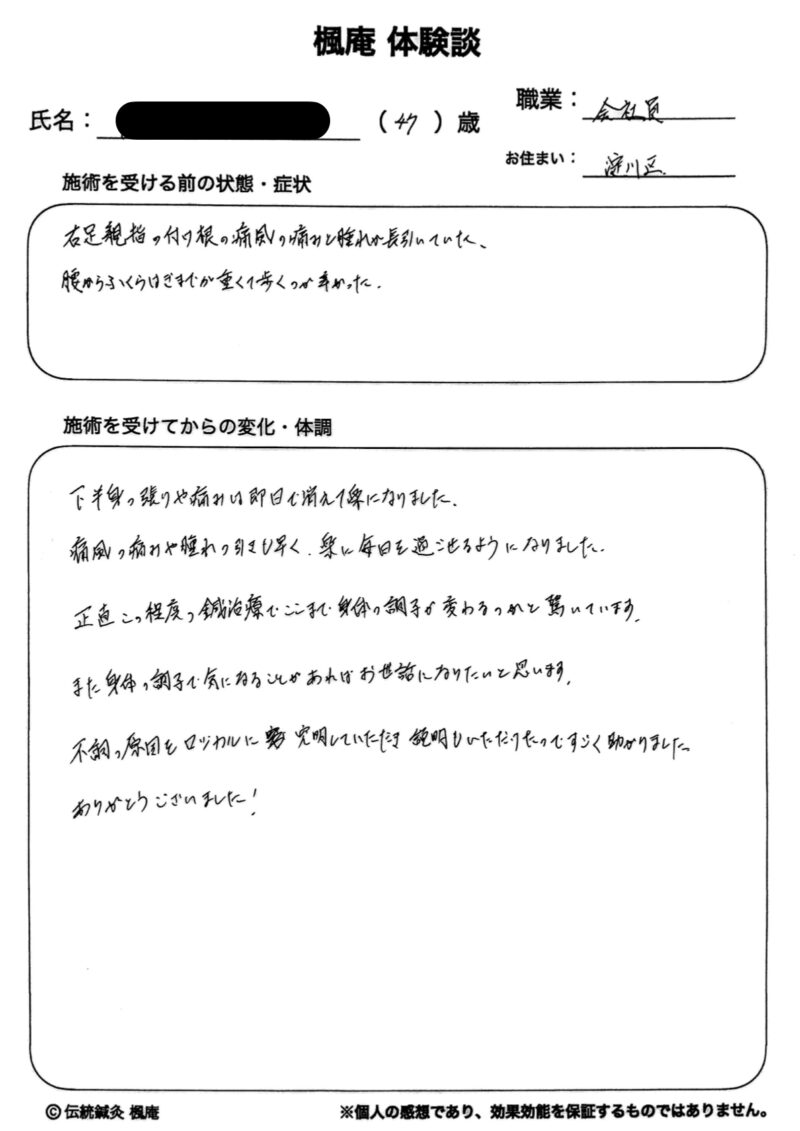 楓庵 体験談
氏名： （47）歳
職業： 会社員
お住まい： 淀川区
施術を受ける前の状態・症状
右足親指の付け根の痛風の痛みと腫れが長引いていた、
腰からふくらはぎまでが重くて歩くのが辛かった.
施術を受けてからの変化・体調
下半身の張りや痛みは即日で消えて楽になりました.
痛風の痛みや腫れの引きも早く、楽に毎日を過ごせるようになりました.
正直この程度の鍼治療でここまで身体の調子が変わるのかと驚いています.
また身体の調子で気になることがあればお世話になりたいと思います.
不調の原因をロジカルに究明していただき 説明もいただけたのですごく助かりました
ありがとうございました!
©伝統鍼灸 楓庵
※個人の感想であり、効果効能を保証するものではありません。